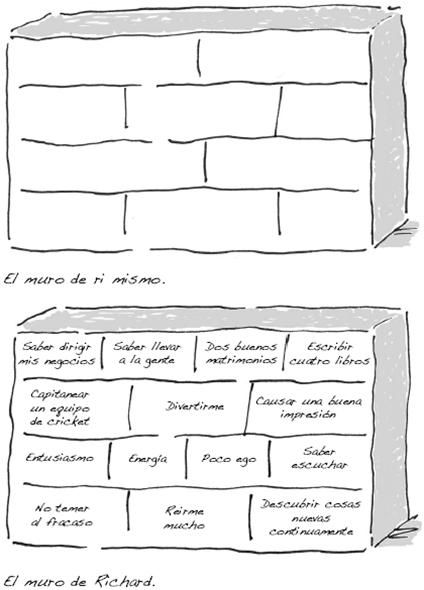 El muro de ri mismo.
Saber dirigir
mis negocios
Saber llevar
a la gente
Dos buenos
matrimonios
Escribir
cuatro libros
Capitanear
un equipo
de cricket
Divertirme
Causar una buena
impresión
Entusiasmo
Energía
Poco ego
Saber
escuchar
No temer
al fracaso
Reírme
mucho
Descubrir cosas
nuevas
continuamente
El muro de Richard.